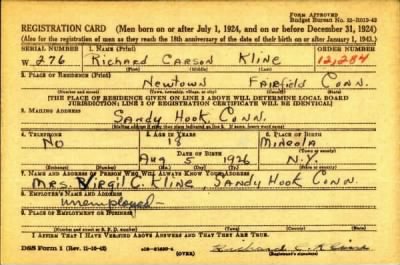 Form Approved
Budget Bureau No. 33-R013-42
REGISTRATION CARD (Men born on or after July 1, 1924, and on or before December 31, 1924)
(Also for the registration of men as they reach the 18th anniversary of the date of their birth on or after January 1, 1943.)
SERIAL NUMBER 1. NAME (Print) ORDER NUMBER
W 276 Richard Carson Kline 12,284
(First) (Middle) (Last)
2. PLACE OF RESIDENCE (Print)
Newtown Fairfield Conn.
(Number and street) (Town, township, village, or city) (County) (State)
[THE PLACE OF RESIDENCE GIVEN ON LINE 2 ABOVE WILL DETERMINE LOCAL BOARD
JURISDICTION; LINE 2 OF REGISTRATION CERTIFICATE WILL BE IDENTICAL]
3. MAILING ADDRESS
Sandy Hook Conn.
[Mailing address if other than place indicated on line 2. If same, insert word same]
4. TELEPHONE 5. AGE IN YEARS 6. PLACE OF BIRTH
No 18 Mineola
DATE OF BIRTH
Aug 5 1926 N.Y.
(Exchange) (Number) (Mo.) (Day) (Yr.) (State or country)
7. NAME AND ADDRESS OF PERSON WHO WILL ALWAYS KNOW YOUR ADDRESS
Mrs. Virgil C. Kline, Sandy Hook Conn.
8. EMPLOYER'S NAME AND ADDRESS
unemployed-
9. PLACE OF EMPLOYMENT OR BUSINESS
(Number and street or R. F. D. number) (Town) (County) (State)
I AFFIRM THAT I HAVE VERIFIED ABOVE ANSWERS AND THAT THEY ARE TRUE.
DSS Form 1 (Rev. 11-16-42) (OVER) Richard C. Kline
(Registrant's signature)